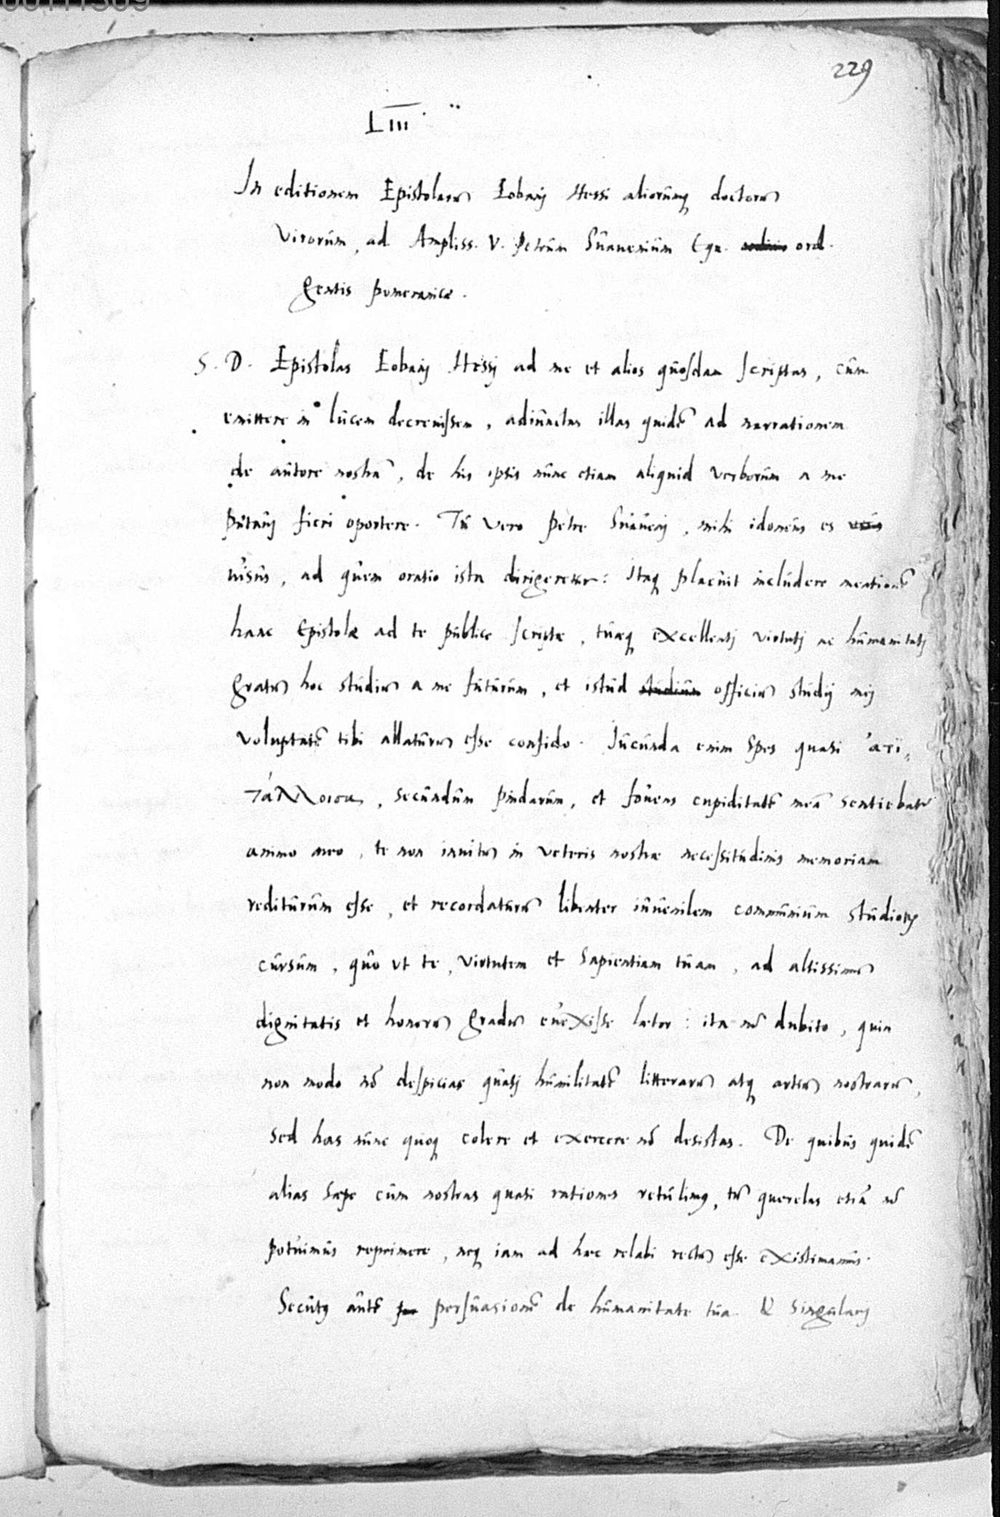 229
LIII
In editionem Epistolarũ Eobanj Hessi aliorumq doctorũ
virorum, ad Ampliss. V. Petrum Suauenium Equ. ord.
gentis pomeranicæ.
S. D. Epistolas Eobanj Hessj ad me et alios quosdam scriptas, cum
emittere in lucem decreuissem, adiunctas illas quidẽ ad narrationem
de autore nostrã, de his ipsis nunc etiam aliquid verborum a me
putauj fieri oportere. Tu vero petre Suauenj, mihi idoneus es
uisus, ad quem oratio ista dirigeretur: Itaq placuit includere mentionẽ
hanc Epistolæ ad te publice scriptæ, tuæq excellentj virtutj ac humanitatj
gratũ hoc studiũ a me futurum, et istud officiũ studij mej
voluptatẽ tibi allaturũ esse confido. Jucunda enim spes quasi ἀτι
τάλλοισα, secundum pindarum, et fouens cupiditatẽ meã sentiebatr
animo meo, te non inuitũ in veteris nostræ necessitudinis memoriam
rediturum esse, et recordaturũ libenter iuuenilem communium studiorũ
cursum, quo ut te, virtutem et sapientiam tuam, ad altissimũ
dignitatis et honorũ gradũ euexisse lætor: ita nõ dubito, quin
non modo nõ despicias quasj humilitatẽ litterarũ atq artiũ nostrarũ,
sed has nunc quoq colere et exercere nõ desistas. De quibus quidẽ
alias sæpe cum nostras quasi rationes retulimq, tũ querelas etiã nõ
potuimus reprimere, neq iam ad hæc relabi rectũ esse existimamus.
Secutq autẽ persuasionẽ de humanitate tua & singularj